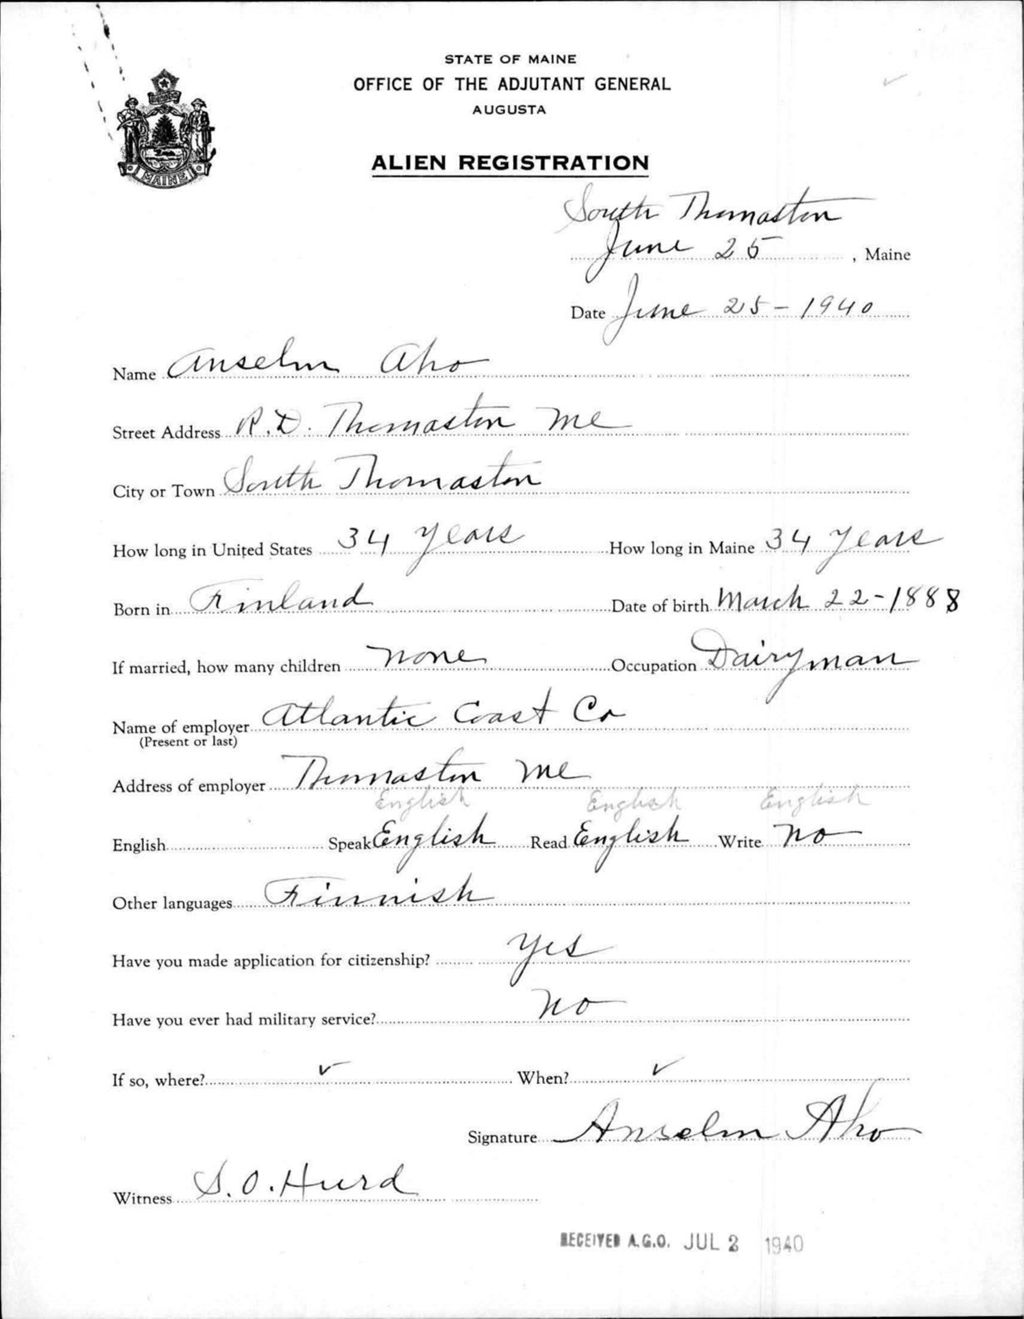 STATE OF MAINE
OFFICE OF THE ADJUTANT GENERAL
AUGUSTA
ALIEN REGISTRATION
MAINE
South Thomaston
June 25, Maine
Date June 25-1940
Name Anselm Aho
Street Address R.D. Thomaston Me
City or Town South Thomaston
How long in United States 34 years How long in Maine 34 years
Born in Finland Date of birth March 22-1888
If married, how many children none Occupation Dairyman
Name of employer Atlantic Coast Co
(Present or last)
Address of employer Thomaston Me
English English English
English Speak English Read English Write No
Other languages Finnish
Have you made application for citizenship? yes
Have you ever had military service? No
If so, where? ✓ When? ✓
Signature Anselm Aho
Witness S.O. Hurd
RECEIVED A.G.O. JUL 2 1940